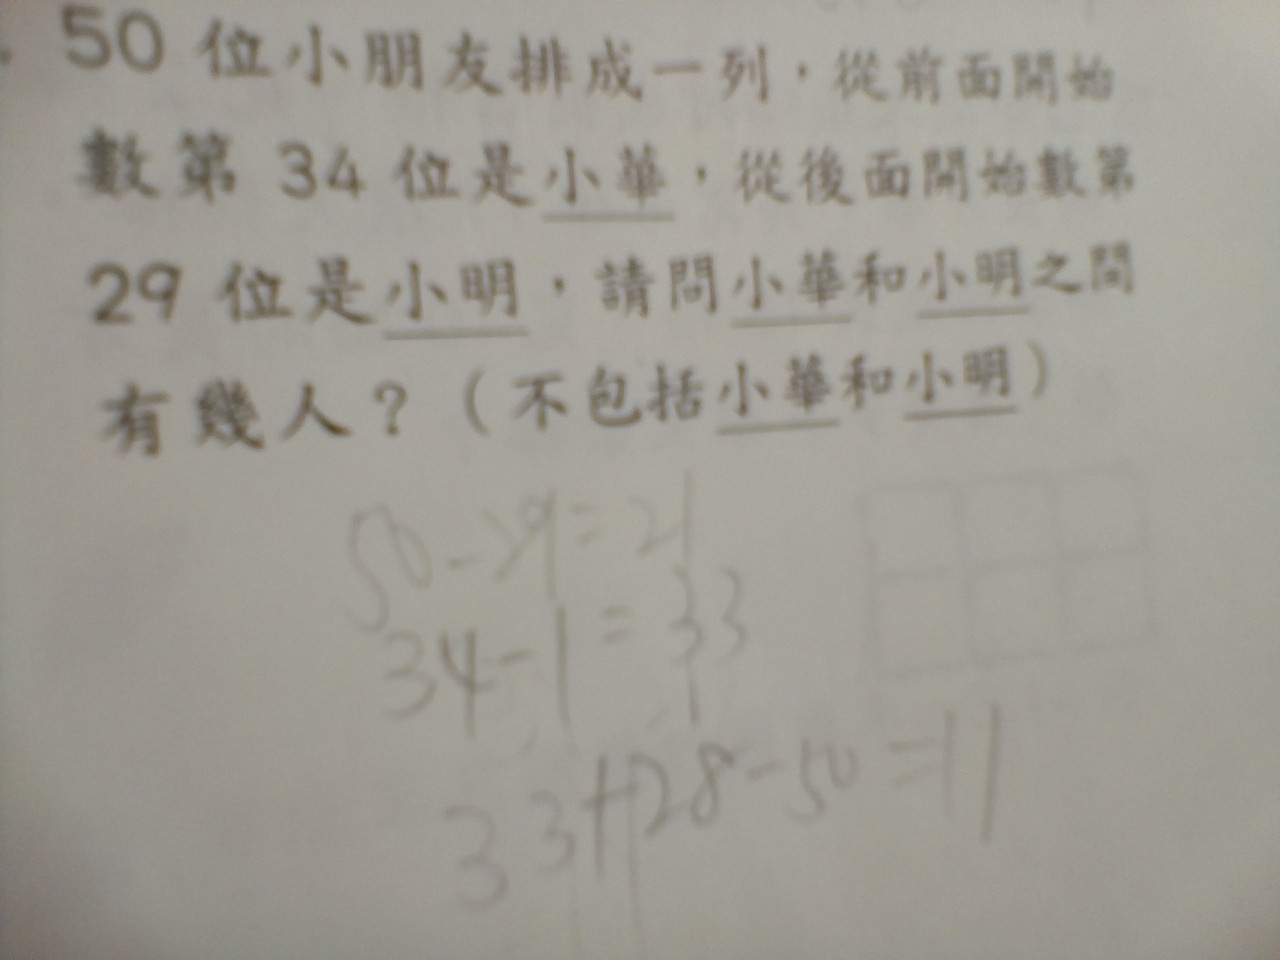 50 位小朋友排成一列,從前面開始
數第 34 位是小華,從後面開始數第
29 位是小明,請問小華和小明之間
有幾人?(不包括小華和小明)
50-29=21
34-1=33
33+28-50=11